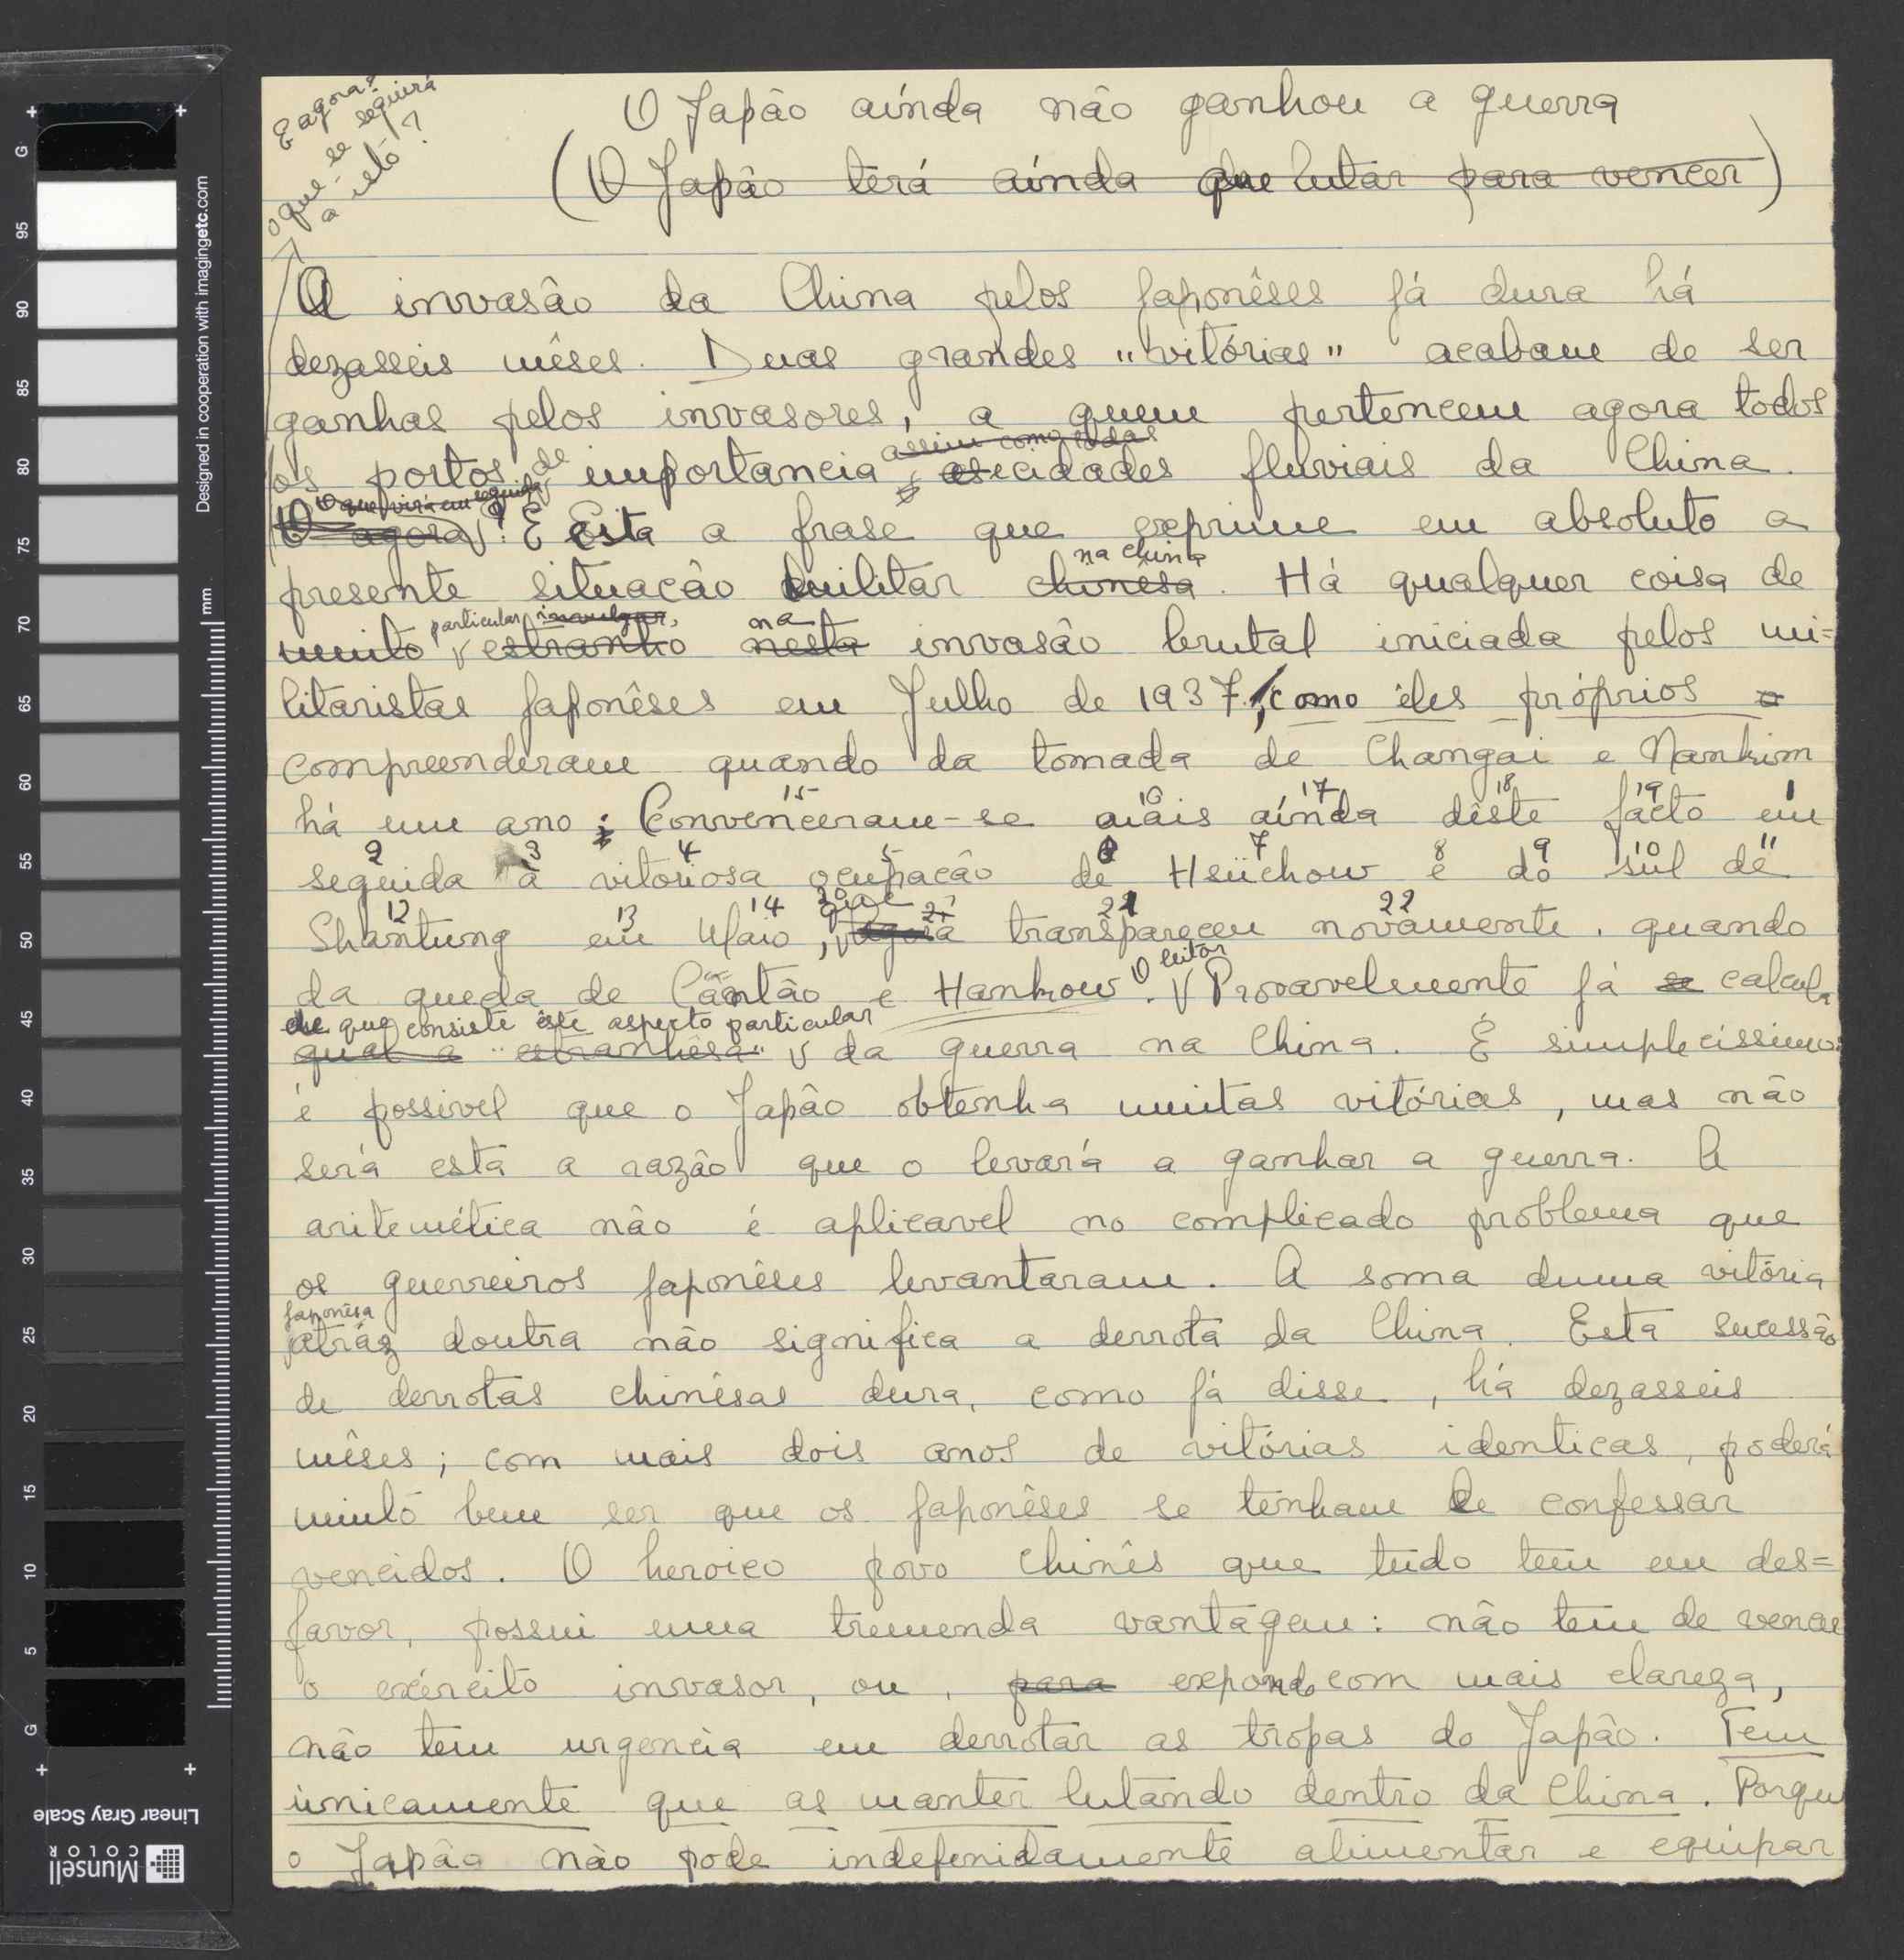 E agora?
o que se seguirá
a isto?
O Japão ainda não ganhou a guerra
(O Japão terá ainda que lutar para vencer)
A invasão da China pelos japonêses já dura há
dezasseis mêses. Duas grandes "vitórias" acabam de ser
ganhas pelos invasores, a quem pertencem agora todos
assim como todas
os portos de importancia e as cidades fluviais da China.
O que virá em seguida
E agora? É esta a frase que exprime em absoluto a
na China
presente situação militar chinesa. Há qualquer coisa de
particular invulgar, na
muito estranho nesta invasão brutal iniciada pelos mi=
litaristas japonêses em Julho de 1937, como êles próprios
compreenderam quando da tomada de Changai e Nankim
15 16 17 18 19 1
há um ano; Convenceram-se mais ainda dêste facto em
2 3 4 5 6 7 8 9 10 11
seguida à vitoriosa ocupação de Hsüchow e do sul de
12 13 14 20 que 21 21 22
Shantung em Maio, agora transpareceu novamente. quando
O leitor
da queda de Cantão e Hankow. Provavelmente já se calcula
de que consiste êste aspecto particular
qual a "estranhêsa" da guerra na China. É simplecissimo:
é possivel que o Japão obtenha muitas vitórias, mas não
será esta a razão que o levará a ganhar a guerra. A
aritemética não é aplicavel no complicado problema que
os guerreiros japonêses levantaram. A soma duma vitória
japonêsa
atráz doutra não significa a derrota da China. Esta sucessão
de derrotas chinêsas dura, como já disse, há dezasseis
mêses; com mais dois anos de vitórias identicas, poderá
muito bem ser que os japonêses se tenham de confessar
vencidos. O heroico povo chinês que tudo tem em des=
favor, possui uma tremenda vantagem: não tem de vencer
o exército invasor, ou, para expondo com mais clareza,
não tem urgencia em derrotar as tropas do Japão. Tem
ùnicamente que as manter lutando dentro da China. Porque
o Japão não pode indefenidamente alimentar e equipar
Designed in cooperation with imagingetc.com
mm
G 95 90 85 80 75 70 65 60 55 50 45 40 35 30 25 20 15 10 5 G
Linear Gray Scale
Munsell
COLOR